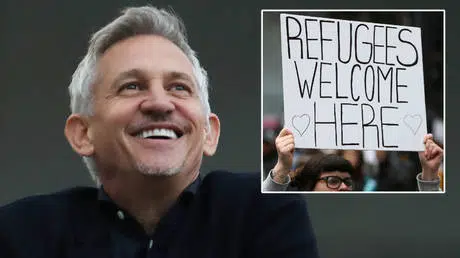 REFUGEES
WELCOME
HERE